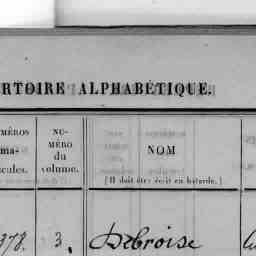 RTOIRE ALPHABÉTIQUE.
MÉROS
ma-
cules.
NU-
MÉRO
du
volume.
NOM
(Il doit être écrit en bâtarde.)
378. 3. Debroise